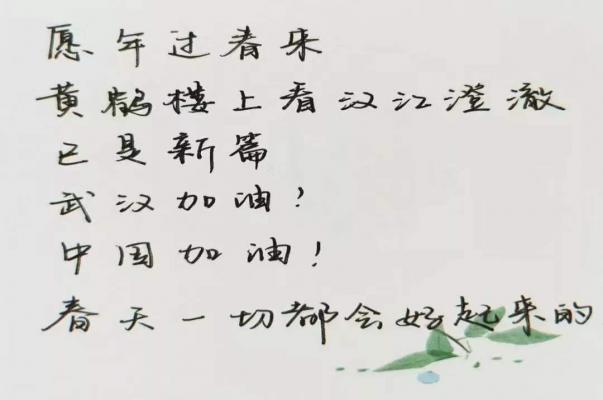 愿年过春来
黄鹤楼上看汉江澄澈
已是新篇
武汉加油!
中国加油!
春天一切都会好起来的